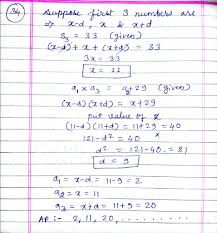 34
Suppose first 3 numbers are
⇒ x-d, x & x+d
S₃ = 33 (given)
(x-d) + x + (x+d) = 33
3x = 33
x = 11
a₁ x a₃ = a₂+29 (given)
(x-d)(x+d) = x+29
put value of x
(11-d)(11+d) = 11+29 = 40
121-d² = 40
d² = 121-40 = 81
d = 9
a₁ = x-d = 11-9 = 2
a₂ = x = 11
a₃ = x+d = 11+9 = 20
AP :- 2, 11, 20, ..........